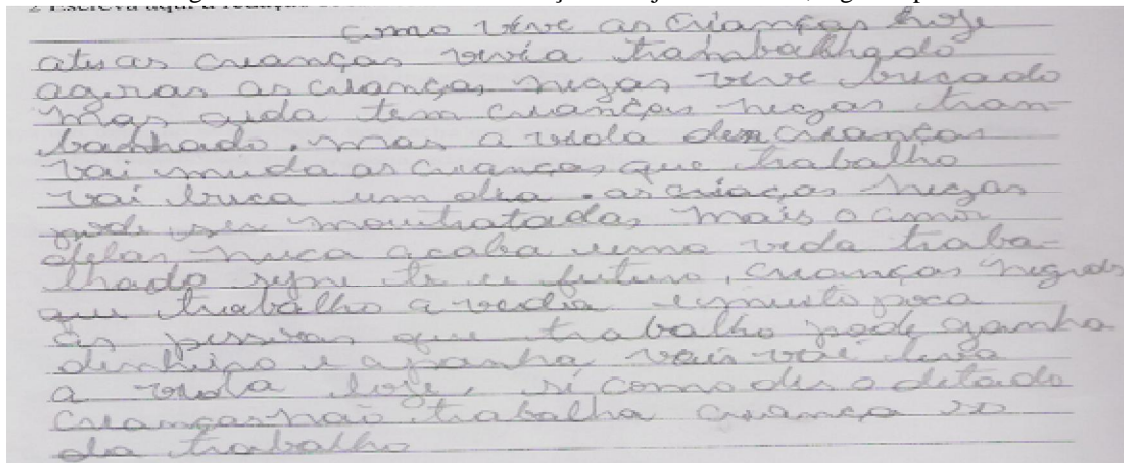 2 Escreva aqui a redação
como vive as crianças hoje
atus as crianças vivia trambalhgado
agoras as crianças negas vive bricado
mas aida tem crianças negas tran-
banhado, mas a vida das crianças
vai muda as crianças que trabalho
vai brica um dia. as criaças negas
pode ser moutratadas mais o amor
delas nuca acaba uma vida traba-
lhado sepre te u futuro, crianças negras
que trabalho a vedia e muito poca
as pessoas que trabalho pode ganha
denhino e apanha vai leva
a vida hoje, si como dis o ditado
crianças não trabalha criança so
da trabalho